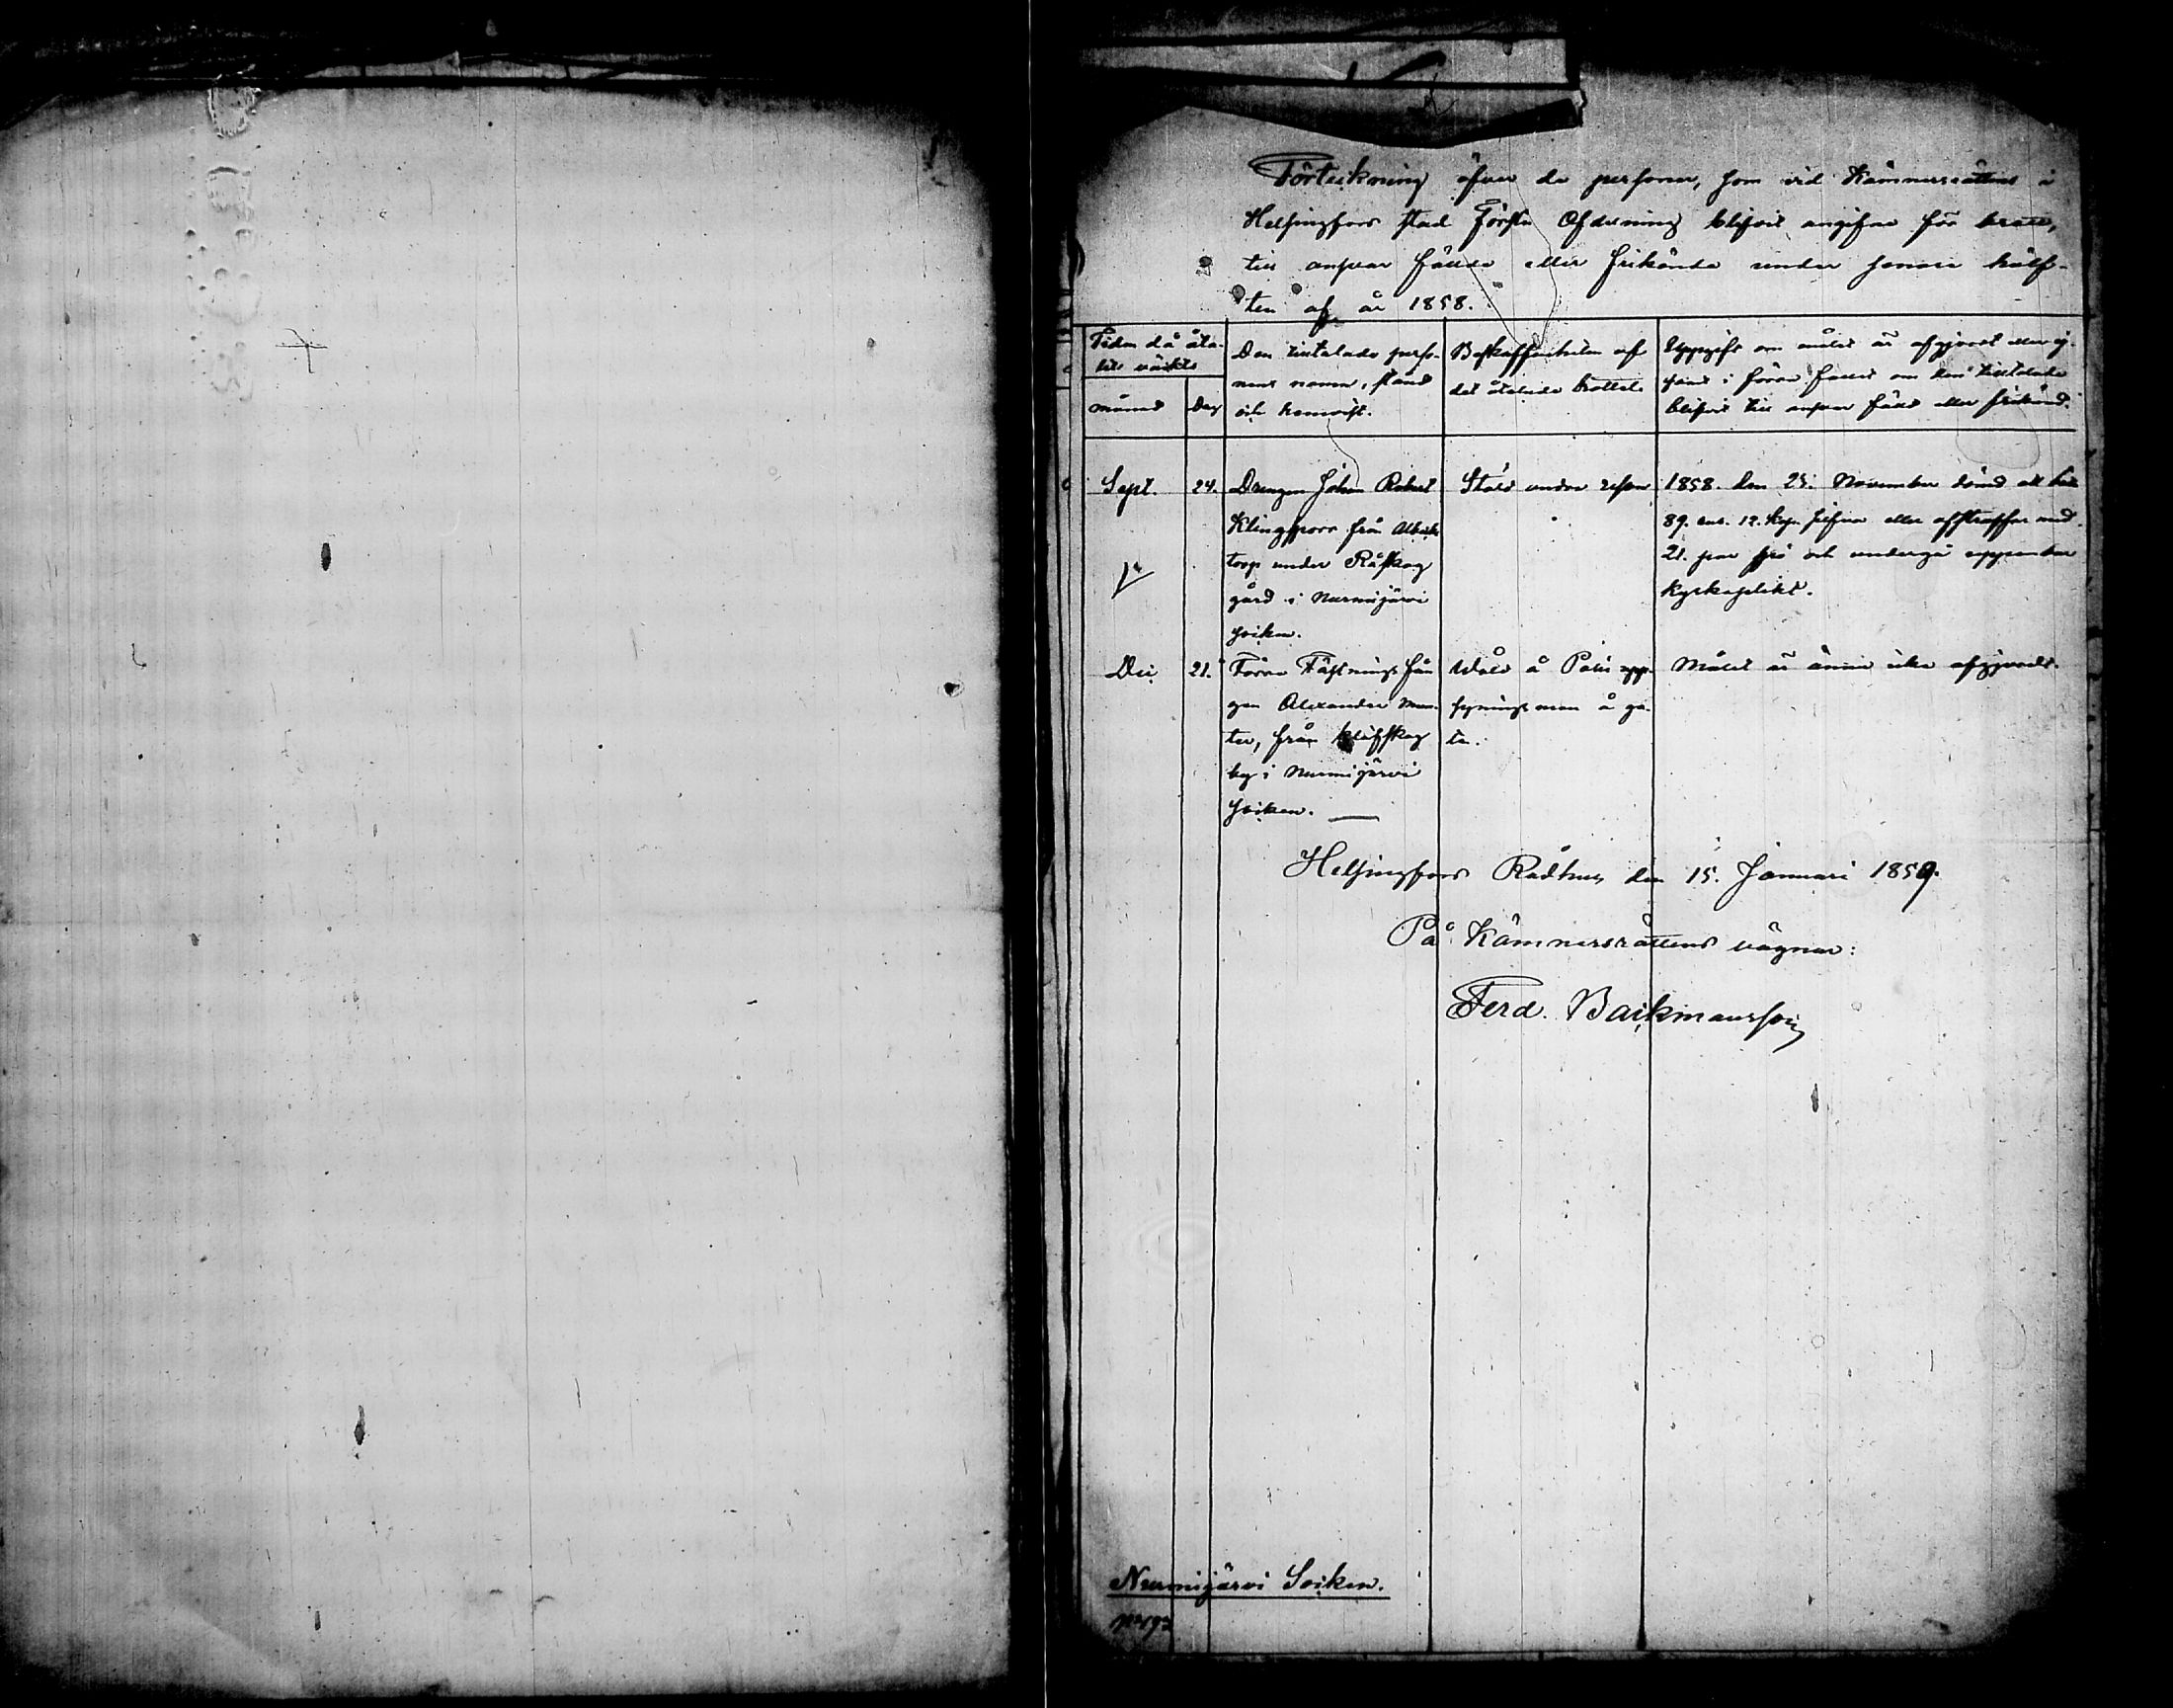 Förteckning öfver de personer, som vid Kämnersrättens i
Helsingfors stad Första Afdelning blifvit angifne för brott,
till ansvar fällde eller frikände under senare hälf-
ten af år 1858.
Tiden då åta-
let väckts
månad
Dag
Den tilltalade perso-
nens namn, stånd
och hemvist.
Beskaffenheten af
det åtalade brottet.
Uppgift om målet är afgjordt eller ej
samt i förra fallet om den tilltalade
blifvit till ansvar fälld eller frikänd.
Sept.
24.
Drengen Johan Robert
Klingsporr från
torp under Råskog
gård i Nurmijärvi
socken.
Stöld under resan
1858. den 25. November dömd att
89. rub. 12. kop. silfver eller afstraffas med
21. par spö och undergå uppenbar
kyrkoplikt.
Dec
21.
Förra Fästningsfån
gen Alexander Mun-
ter, från Klöfskog
by i Nurmijärvi
Socken.
Våld å Polis upp-
syningsman å ga-
ta.
Målet är ännu icke afgjordt.
Helsingfors Rådhus den 15. Januari 1859.
På Kämnersrättens vägnar:
Ferd. Backmansson
Nurmijärvi Socken.